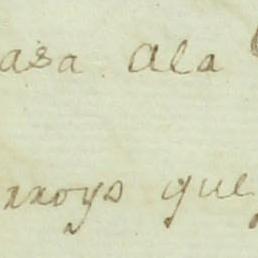 asa ala
rroys que